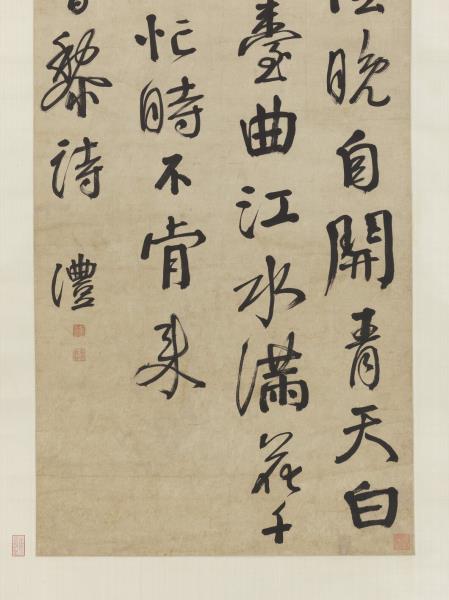 晚自開青天白
臺曲江水滿花千
忙時不肯來
黎詩 澧